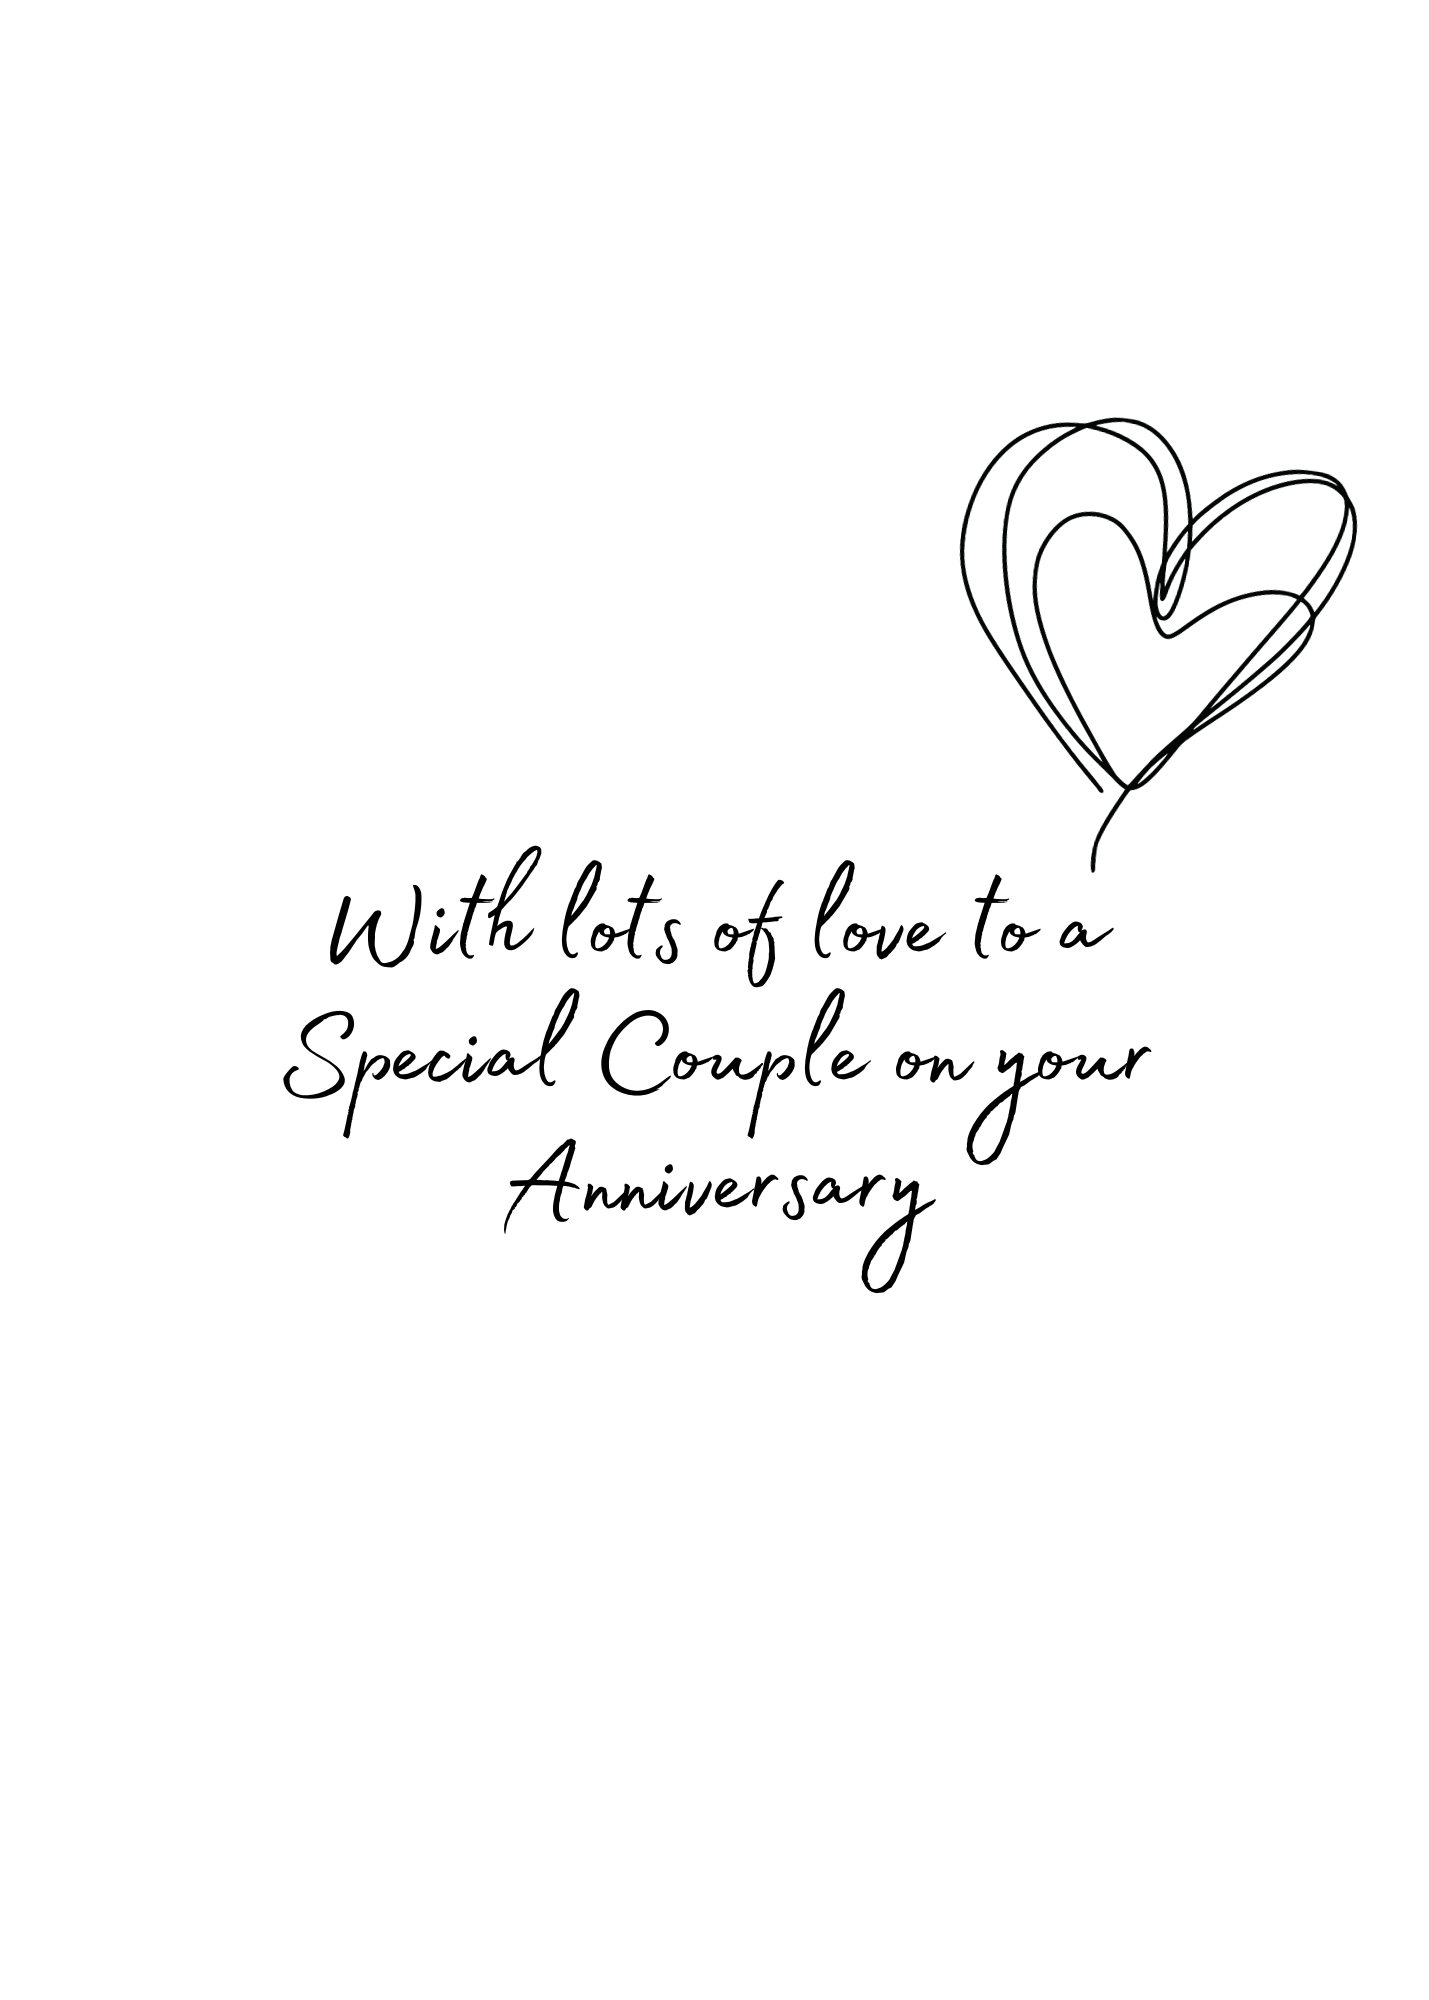 With lots of love to a
Special Couple on your
Anniversary